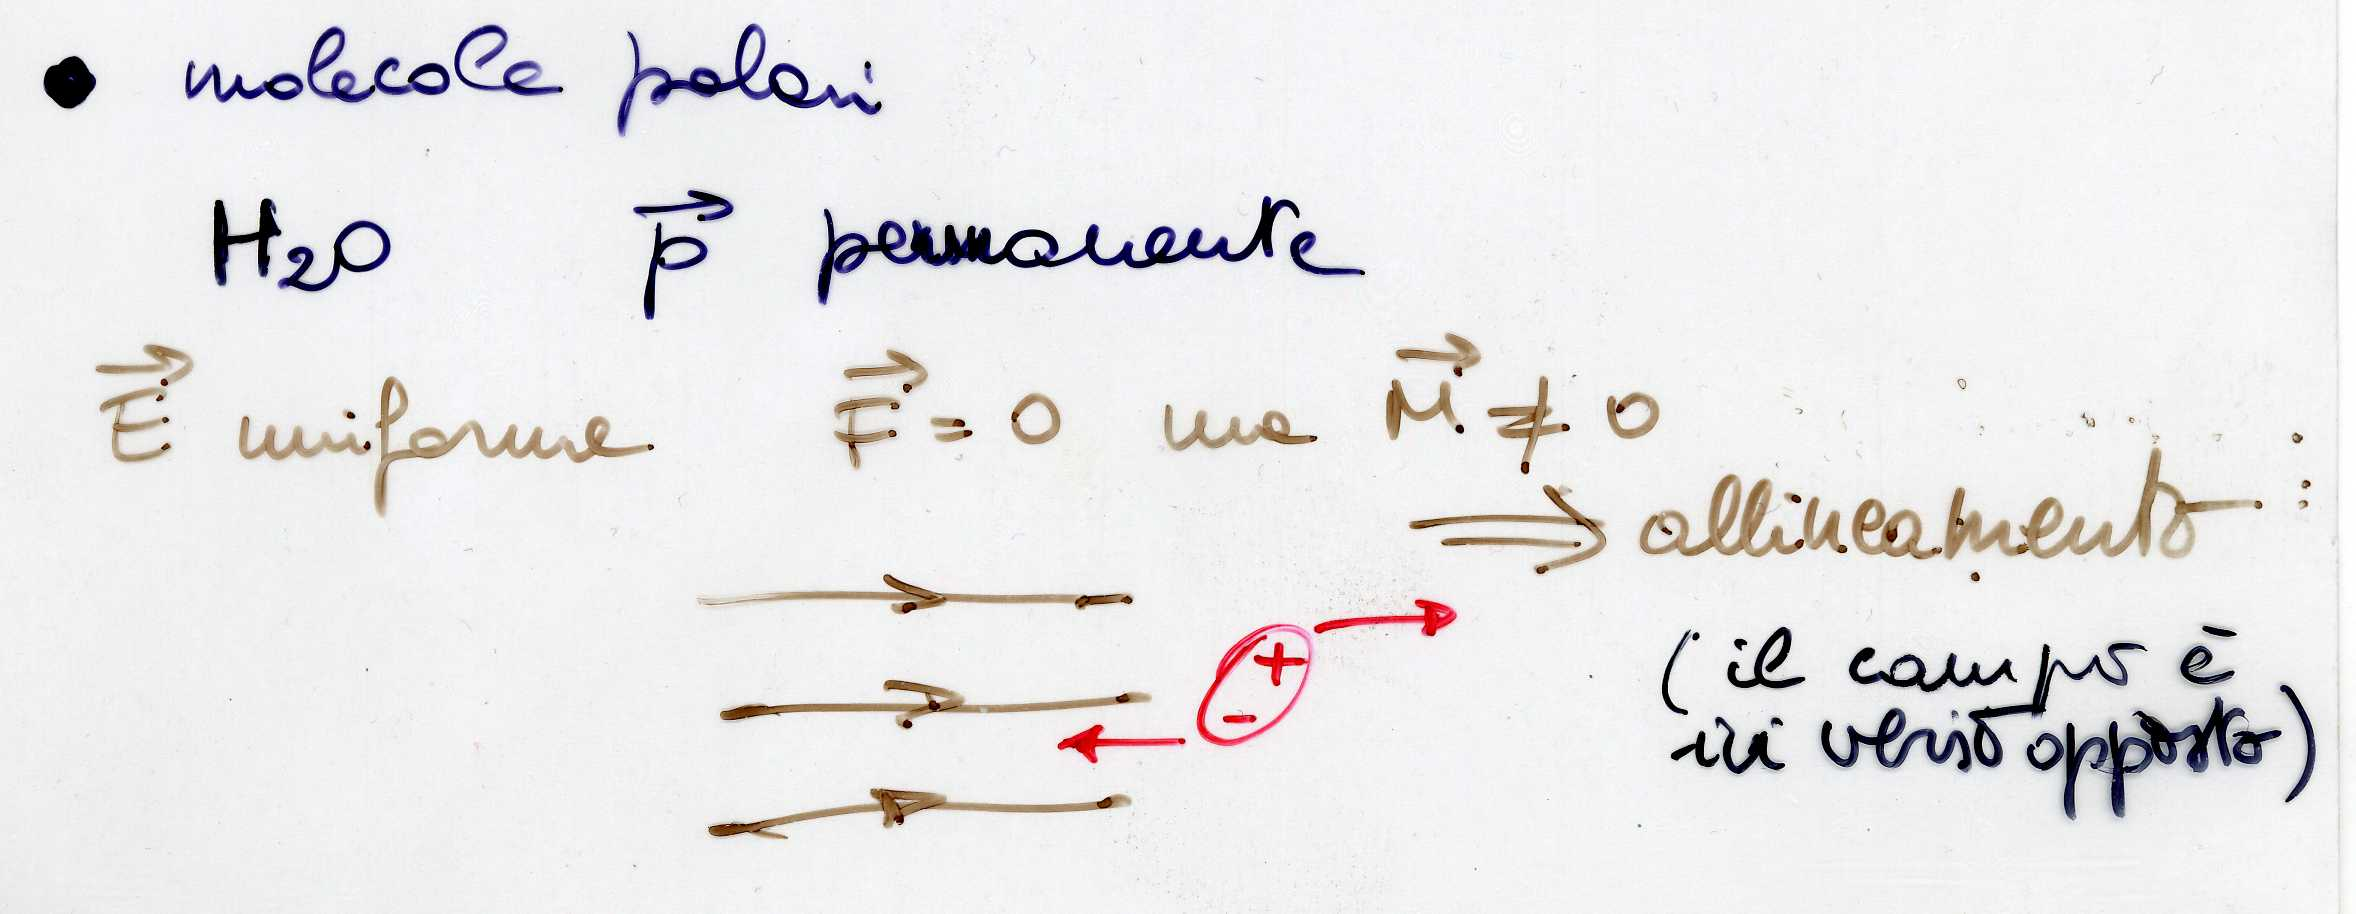 • molecole polari
H₂O p⃗ permanente
E⃗ uniforme F⃗ = 0 ma M⃗ ≠ 0
⇒ allineamento
+
-
(il campo è
in verso opposto)